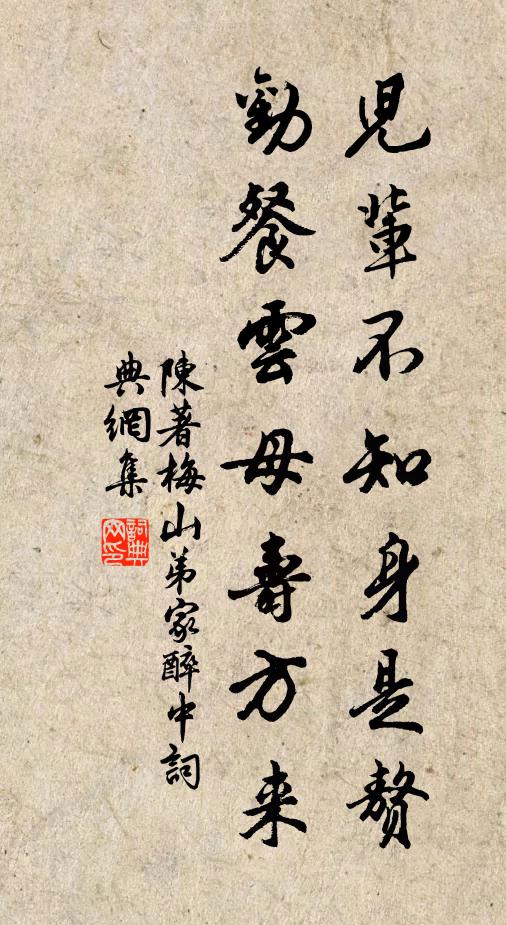 兒輩不知身是贅
勸餐雲母壽方来
陳著梅山弟家醉中詞
典網集
詞典
网印